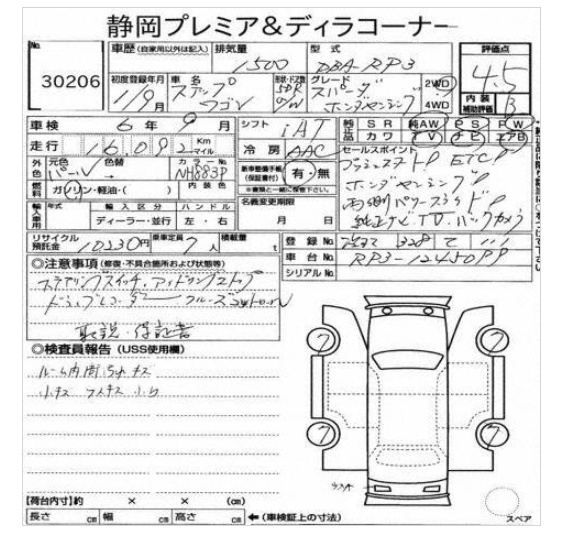 静岡プレミア＆ディラコーナー
No.
30206
車歴（自家用以外は記入）
排気量
1500
型式
DBA-RP3
評価点
4.5
初度登録年月
1/9月
車名
ステップワゴン
形状・ドア数
5D
グレード
スパーダ
ホンダセンシング
2WD
4WD
内装
補助評価
B
車検
6年9月
シフト
iAT
純正品
SR
純AW
PS
PW
カワ
TV
ナビ
エアB
走行
16,092
Km
マイル
冷房
AAC
セールスポイント
ETC
ホンダセンシング
両側パワースライド
純正ナビ・TV・バックカメラ
外色
元色
パール
色替
→
カラーNo.
NH883P
新車整備手帳
（保証書付）
有・無
※書類と一緒に保管下さい。
燃料
ガソリン・軽油・（ ）
内装色
名義変更期限
月 日
輸入車用
年式
輸入区分
ディーラー・並行
ハンドル
左・右
リサイクル預託金
10230円
乗車定員
7人
積載量
t
登録No.
車台No.
RP3-12450
シリアルNo.
◎注意事項（修復・不具合箇所および状態等）
ステアリングスイッチ・アイドリングストップ
ドラレコーダー クルーズコントロール
取説・保証書
◎検査員報告（USS使用欄）
ルーム内
小キズ
7
7
7
7
スペア
【荷台内寸】約 × × （cm）
長さ cm 幅 cm 高さ cm ←（車検証上の寸法）